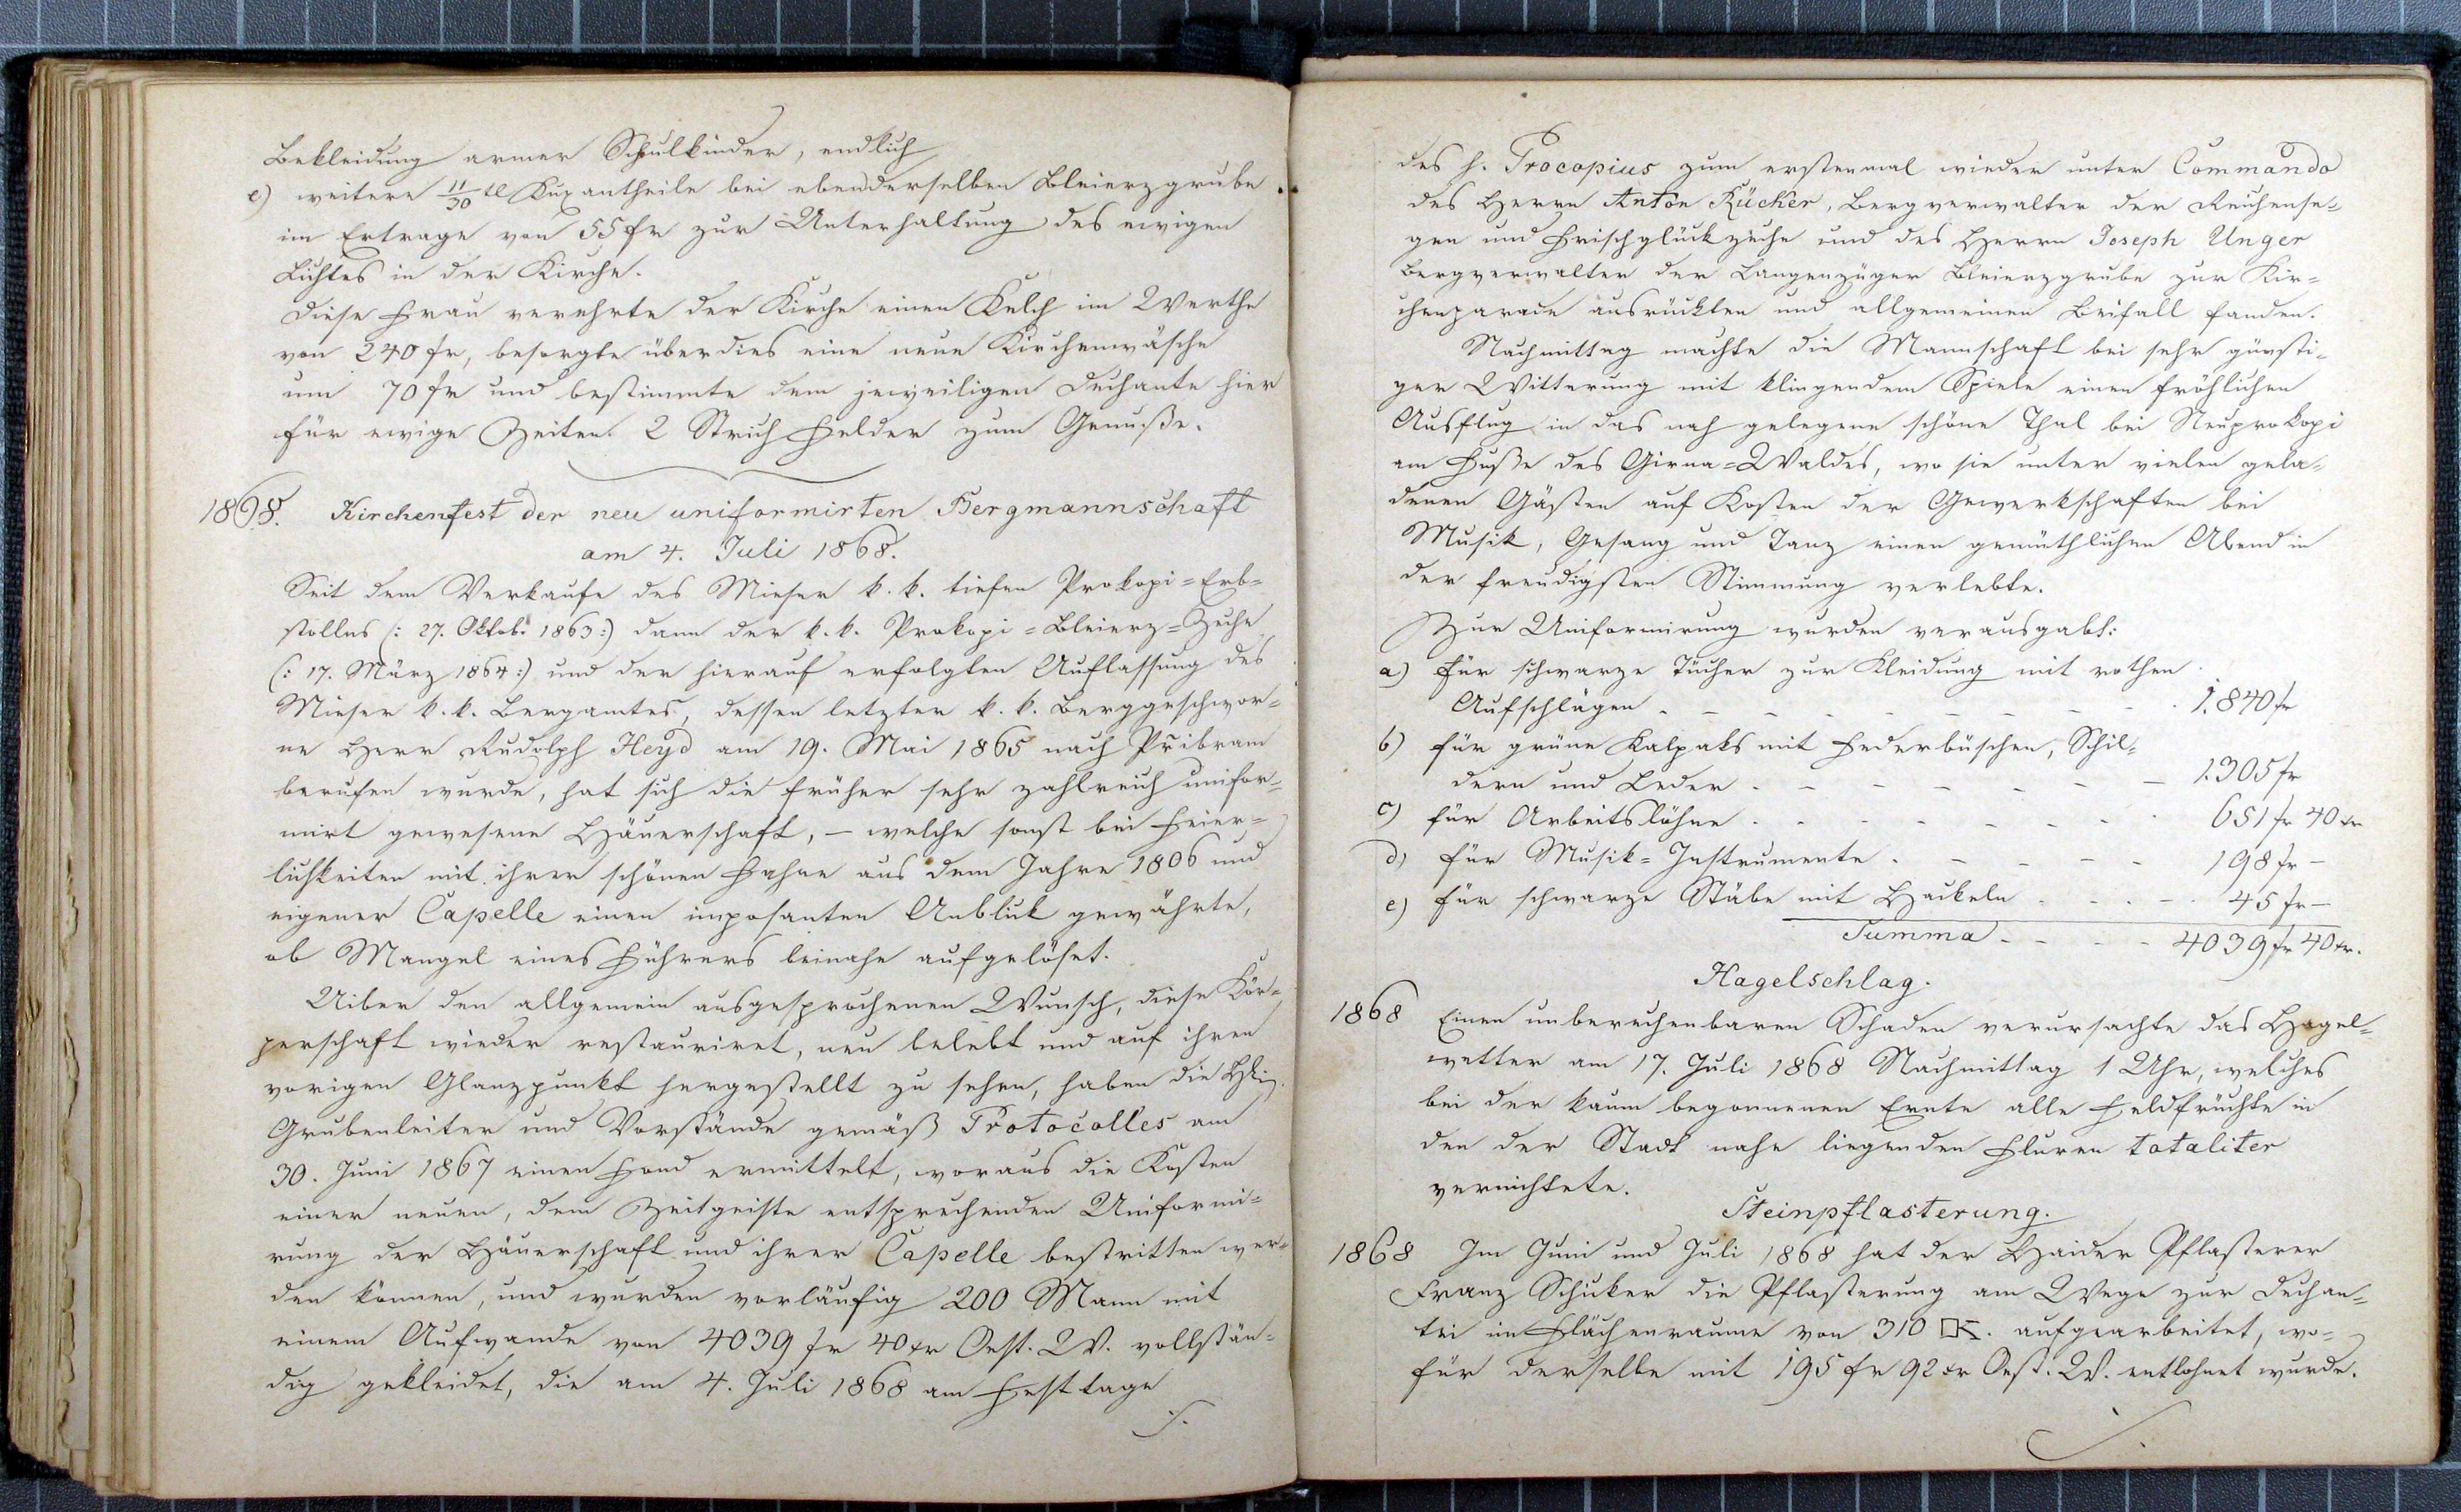 Bekleidung armer Schulkinder, endlich
e) weitere 11/30 tl Kuxantheile bei ebenderselben Bleierzgrube
im Ertrage von 55 fr zur Unterhaltung des ewigen
Lichtes in der Kirche.
Diese Frau verehrte der Kirche einen Kelch im Werthe
von 240 fr, besorgte überdies eine neue Kirchenwäsche
um 70 fr und bestimmte dem jeweiligen Dechante hier
für ewige Zeiten 2 Strich Felder zum Genuße.
1868. Kirchenfest der neu uniformirten Bergmannschaft
am 4. Juli 1868.
Seit dem Verkaufe des Mieser k. k. tiefen Prokopi=Erb=
stollns (: 27. Oktob. 1863:) dann der k. k. Prokopi=Bleierz=Zeche
(: 17. März 1864:) und der hierauf erfolgten Auflassung des
Mieser k. k. Bergamtes, dessen letzter k. k. Berggeschwor=
ne Herr Rudolph Heyd am 19. Mai 1865 nach Přibram
berufen wurde, hat sich die früher sehr zahlreich unifor=
mirt gewesene Häuerschaft, – welche sonst bei Feier=
lichkeiten mit ihrer schönen Fahne aus dem Jahre 1806 und
eigener Capelle einen imposanten Anblick gewährte,
ob Mangel eines Führers beinahe aufgelöset.
Uiber den allgemein ausgesprochenen Wunsch, diese Kör=
perschaft wieder restauriret, neu belebt und auf ihren
vorigen Glanzpunkt hergestellt zu sehen, haben die
Grubenleiter und Vorstände gemäß Protocolles am
30. Juni 1867 einen Fond ermittelt, woraus die Kosten
einer neuen, dem Zeitgeiste entsprechenden Uniformi=
rung der Häuerschaft und ihrer Capelle bestritten wer=
den können, und wurden vorläufig 200 Mann mit
einem Aufwande von 4039 fr 40 xr Oest. W. vollstän=
dig gekleidet, die am 4. Juli 1868 am Festtage
./.
des h. Procopius zum erstenmal wieder unter Commando
des Herrn Anton Rücker, Bergverwalter der Reichense=
gen und Frischglückzeche und des Herrn Joseph Unger
Bergverwalter der Langenzüger Bleierzgrube zur Kir=
chenparade ausrückten und allgemeinen Beifall fanden.
Nachmittag machte die Mannschaft bei sehr günsti=
ger Witterung mit klingendem Spiele einen fröhlichen
Ausflug in das nah gelegene schöne Thal bei Neuprokopi
am Fuße des Girna=Waldes, wo sie unter vielen gela=
denen Gästen auf Kosten der Gewerkschaften bei
Musik, Gesang und Tanz einen gemüthlichen Abend in
der freudigsten Stimmung verlebte.
Zur Uniformirung wurden verausgabt:
a) für schwarze Tücher zur Kleidung mit rothen
Aufschlägen - - - - 1.840 fr
b) für grüne Kalpaks mit Federbüschen, Schil=
dern und Leder - - - - 1.305 fr
c) für Arbeitslöhne - - - - 651 fr 40 xr
d) für Musik=Instrumente - - - - 198 fr –
e) für schwarze Stäbe mit Hackeln - - - - 45 fr –
Summa - - - - 4039 fr 40 xr.
Hagelschlag.
1868 Einen unberechenbaren Schaden verursachte das Hagel=
wetter am 17. Juli 1868 Nachmittag 1 Uhr, welches
bei der kaum begonnenen Ernte alle Feldfrüchte in
den der Stadt nahe liegenden Fluren totaliter
vernichtete.
Steinpflasterung.
1868 Im Juni und Juli 1868 hat der Haider Pflasterer
Franz Schuker die Pflasterung am Wege zur Dechan=
tei im Flächenraume von 310 □K. aufgearbeitet, wo=
für derselbe mit 195 fr 92 xr Oest. W. entlohnet wurde.